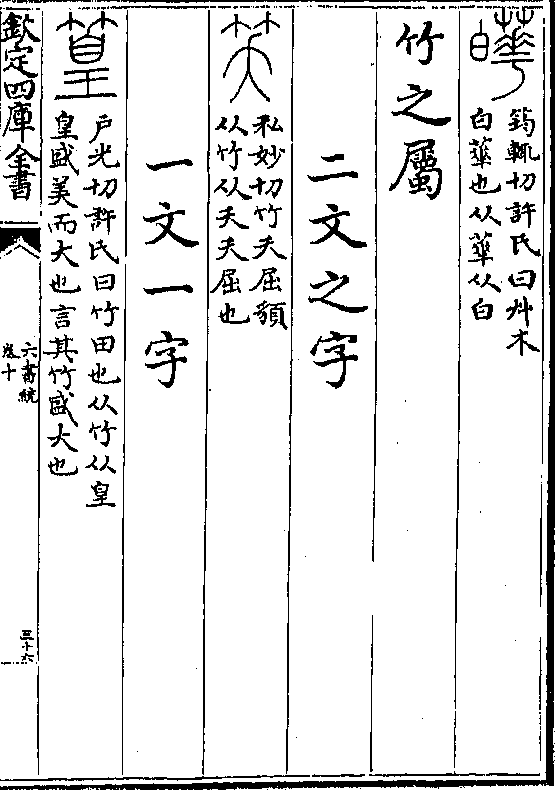 皣
筠輒切許氏曰艸木
白蕐也从蕐从白
竹之屬
二文之字
笑
私妙切竹夭屈䫉
从竹从夭夭屈也
一文一字
篁
戶光切許氏曰竹田也从竹从皇
皇盛美而大也言其竹盛大也
欽定四庫全書
六書統
卷十
三十六